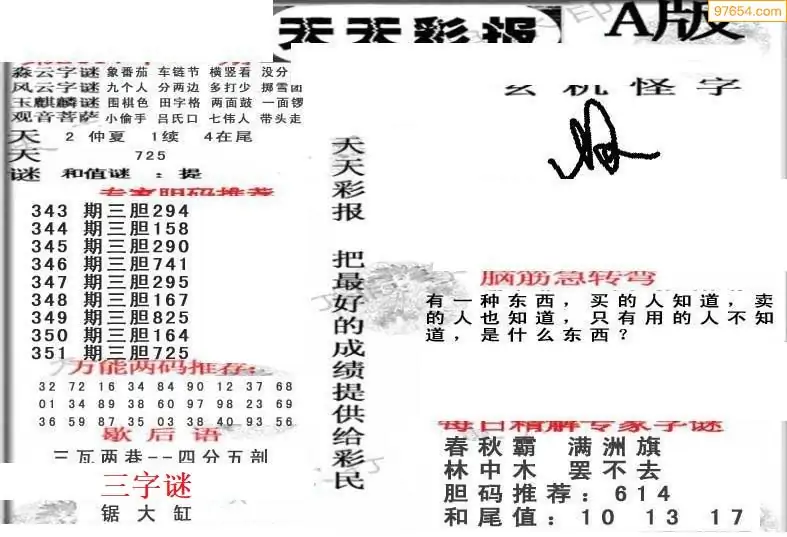 97654.com
天天彩报 A版
淼云字谜 象番茄 车链节 横竖看 没分
风云字谜 九个人 分两边 多打少 掷雪团
玉麒麟谜 围棋色 田字格 两面鼓 一面锣
观音菩萨 小偷手 吕氏口 七伟人 带头走
天 2 仲夏 1续 4在尾
天 725
谜 和值谜 : 提
专家胆码推荐
343 期三胆294
344 期三胆158
345 期三胆290
346 期三胆741
347 期三胆295
348 期三胆167
349 期三胆825
350 期三胆164
351 期三胆725
万能两码推荐:
32 72 16 34 84 90 12 37 68
01 34 89 38 60 97 98 23 69
36 59 87 35 03 38 40 93 56
歇后语
三瓦两巷--四分五剖
三字谜
锯大缸
天天彩报 把最好的成绩提供给彩民
玄机怪字
脑筋急转弯
有一种东西，买的人知道，卖
的人也知道，只有用的人不知
道，是什么东西？
每日精解专家字谜
春秋霸 满洲旗
林中木 罢不去
胆码推荐: 614
和尾值: 10 13 17